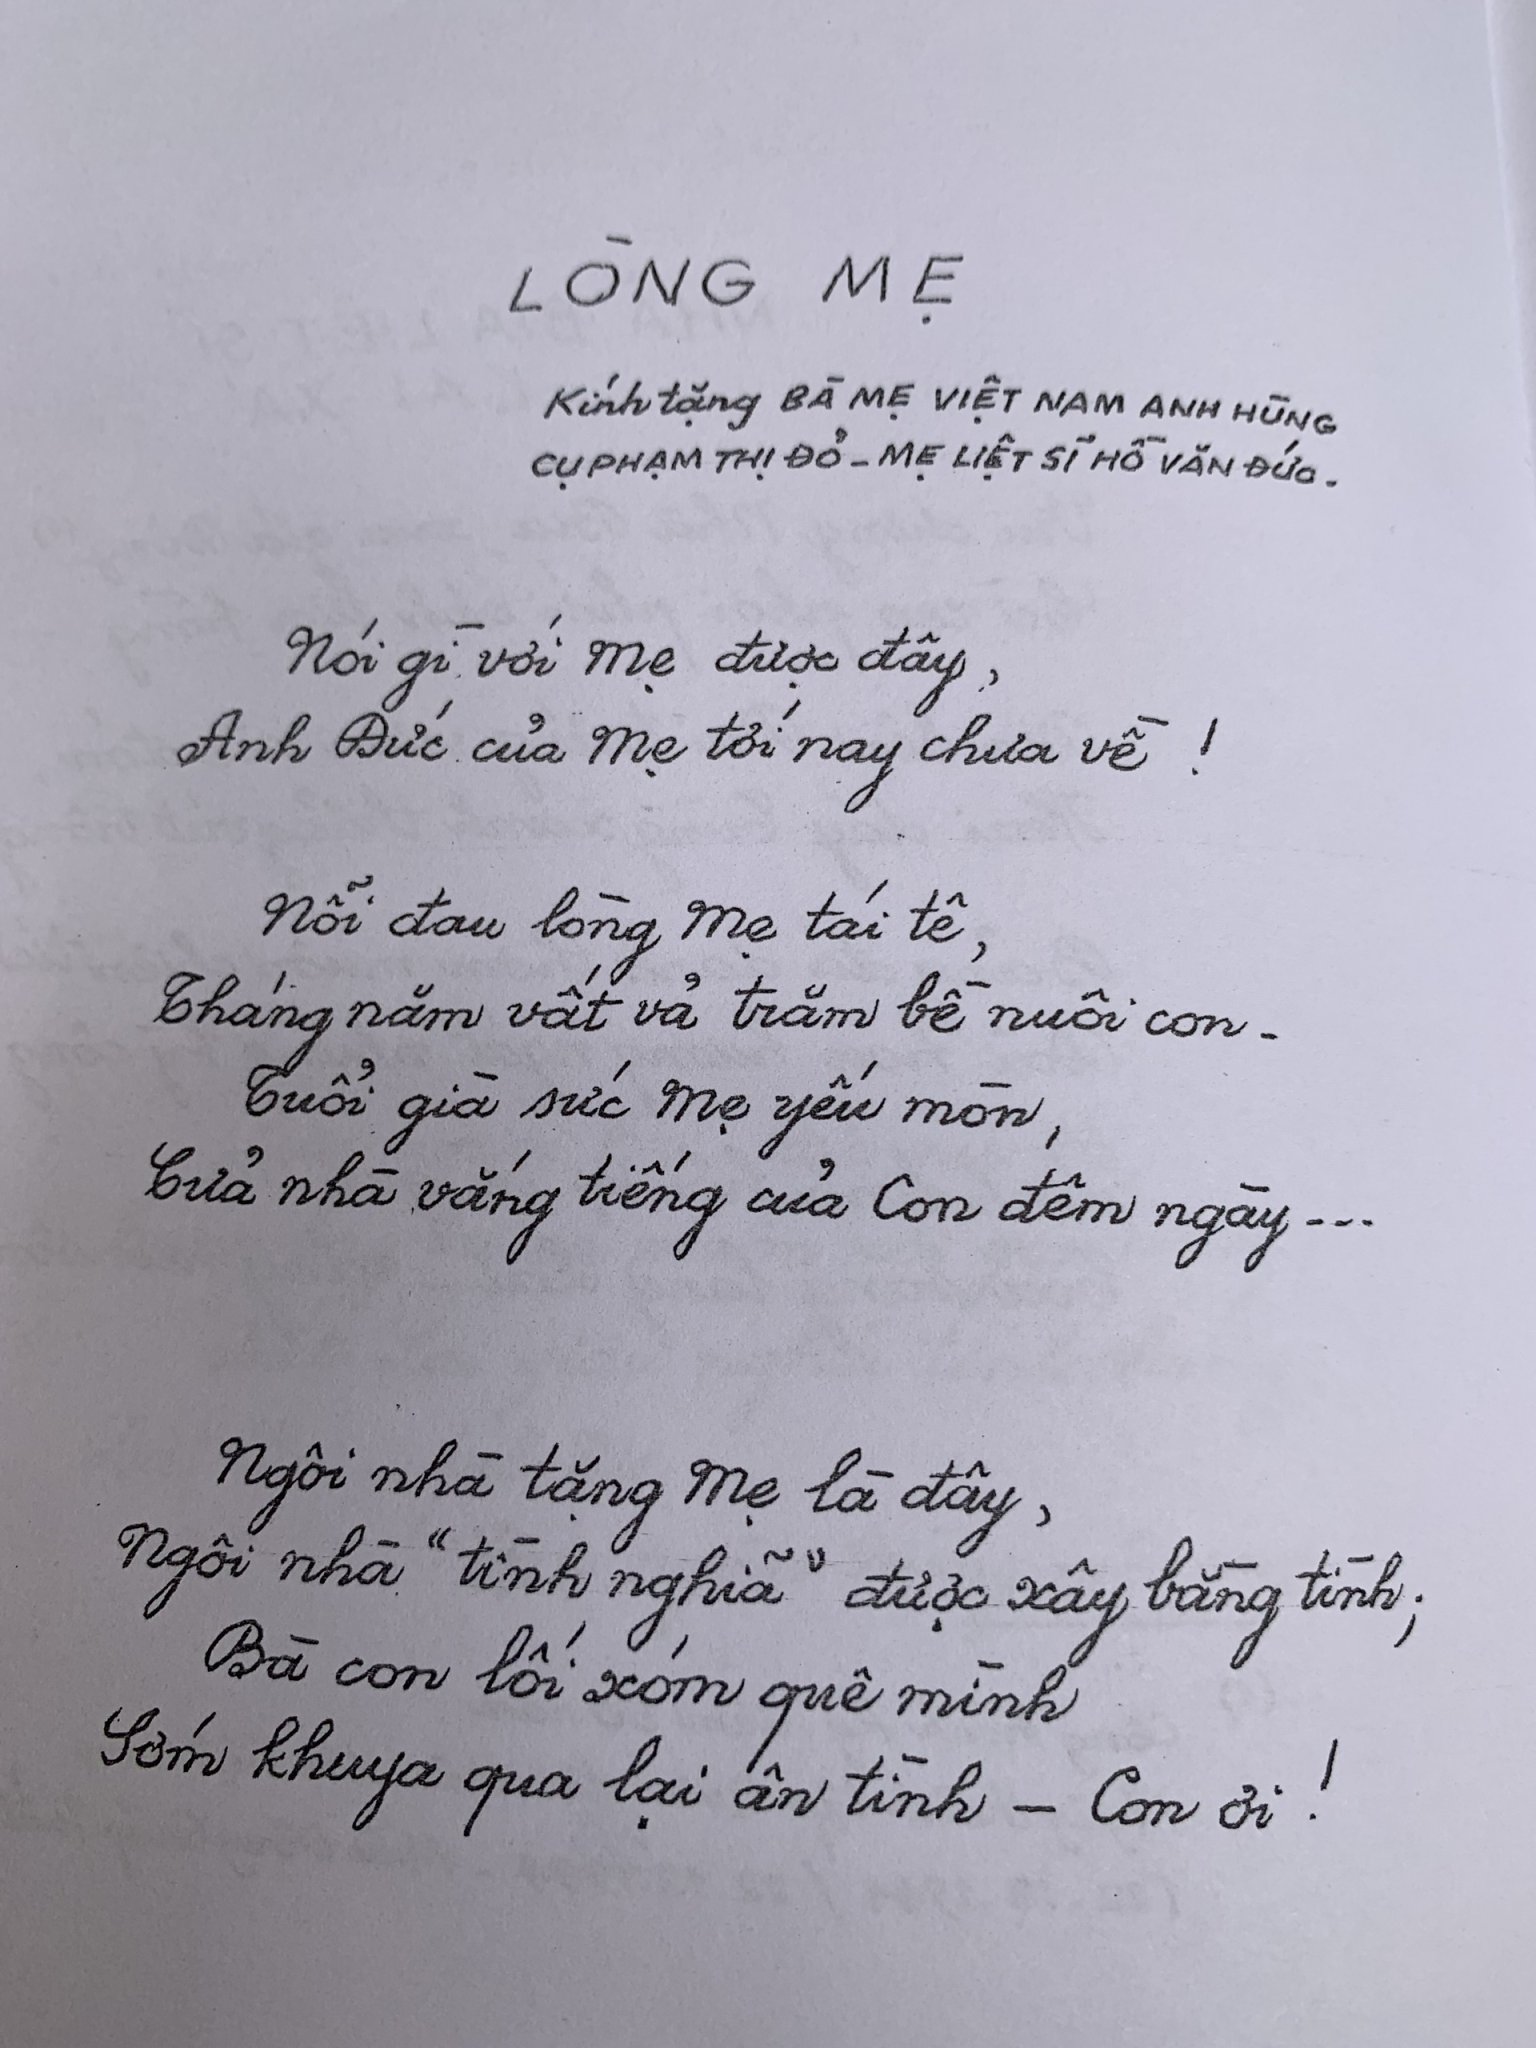 LÒNG MẸ
Kính tặng BÀ MẸ VIỆT NAM ANH HÙNG
CỤ PHẠM THỊ ĐỎ - MẸ LIỆT SĨ HỒ VĂN ĐỨC.
Nói gì với Mẹ được đây,
Anh Đức của Mẹ tới nay chưa về !
Nỗi đau lòng Mẹ tái tê,
Tháng năm vất vả trăm bề nuôi con -
Tuổi già sức Mẹ yếu mòn,
Cửa nhà vắng tiếng của Con đêm ngày ---
Ngôi nhà tặng Mẹ là đây,
Ngôi nhà "tình nghĩa" được xây bằng tình;
Bà con lối xóm quê mình
Sớm khuya qua lại ân tình - Con ơi !